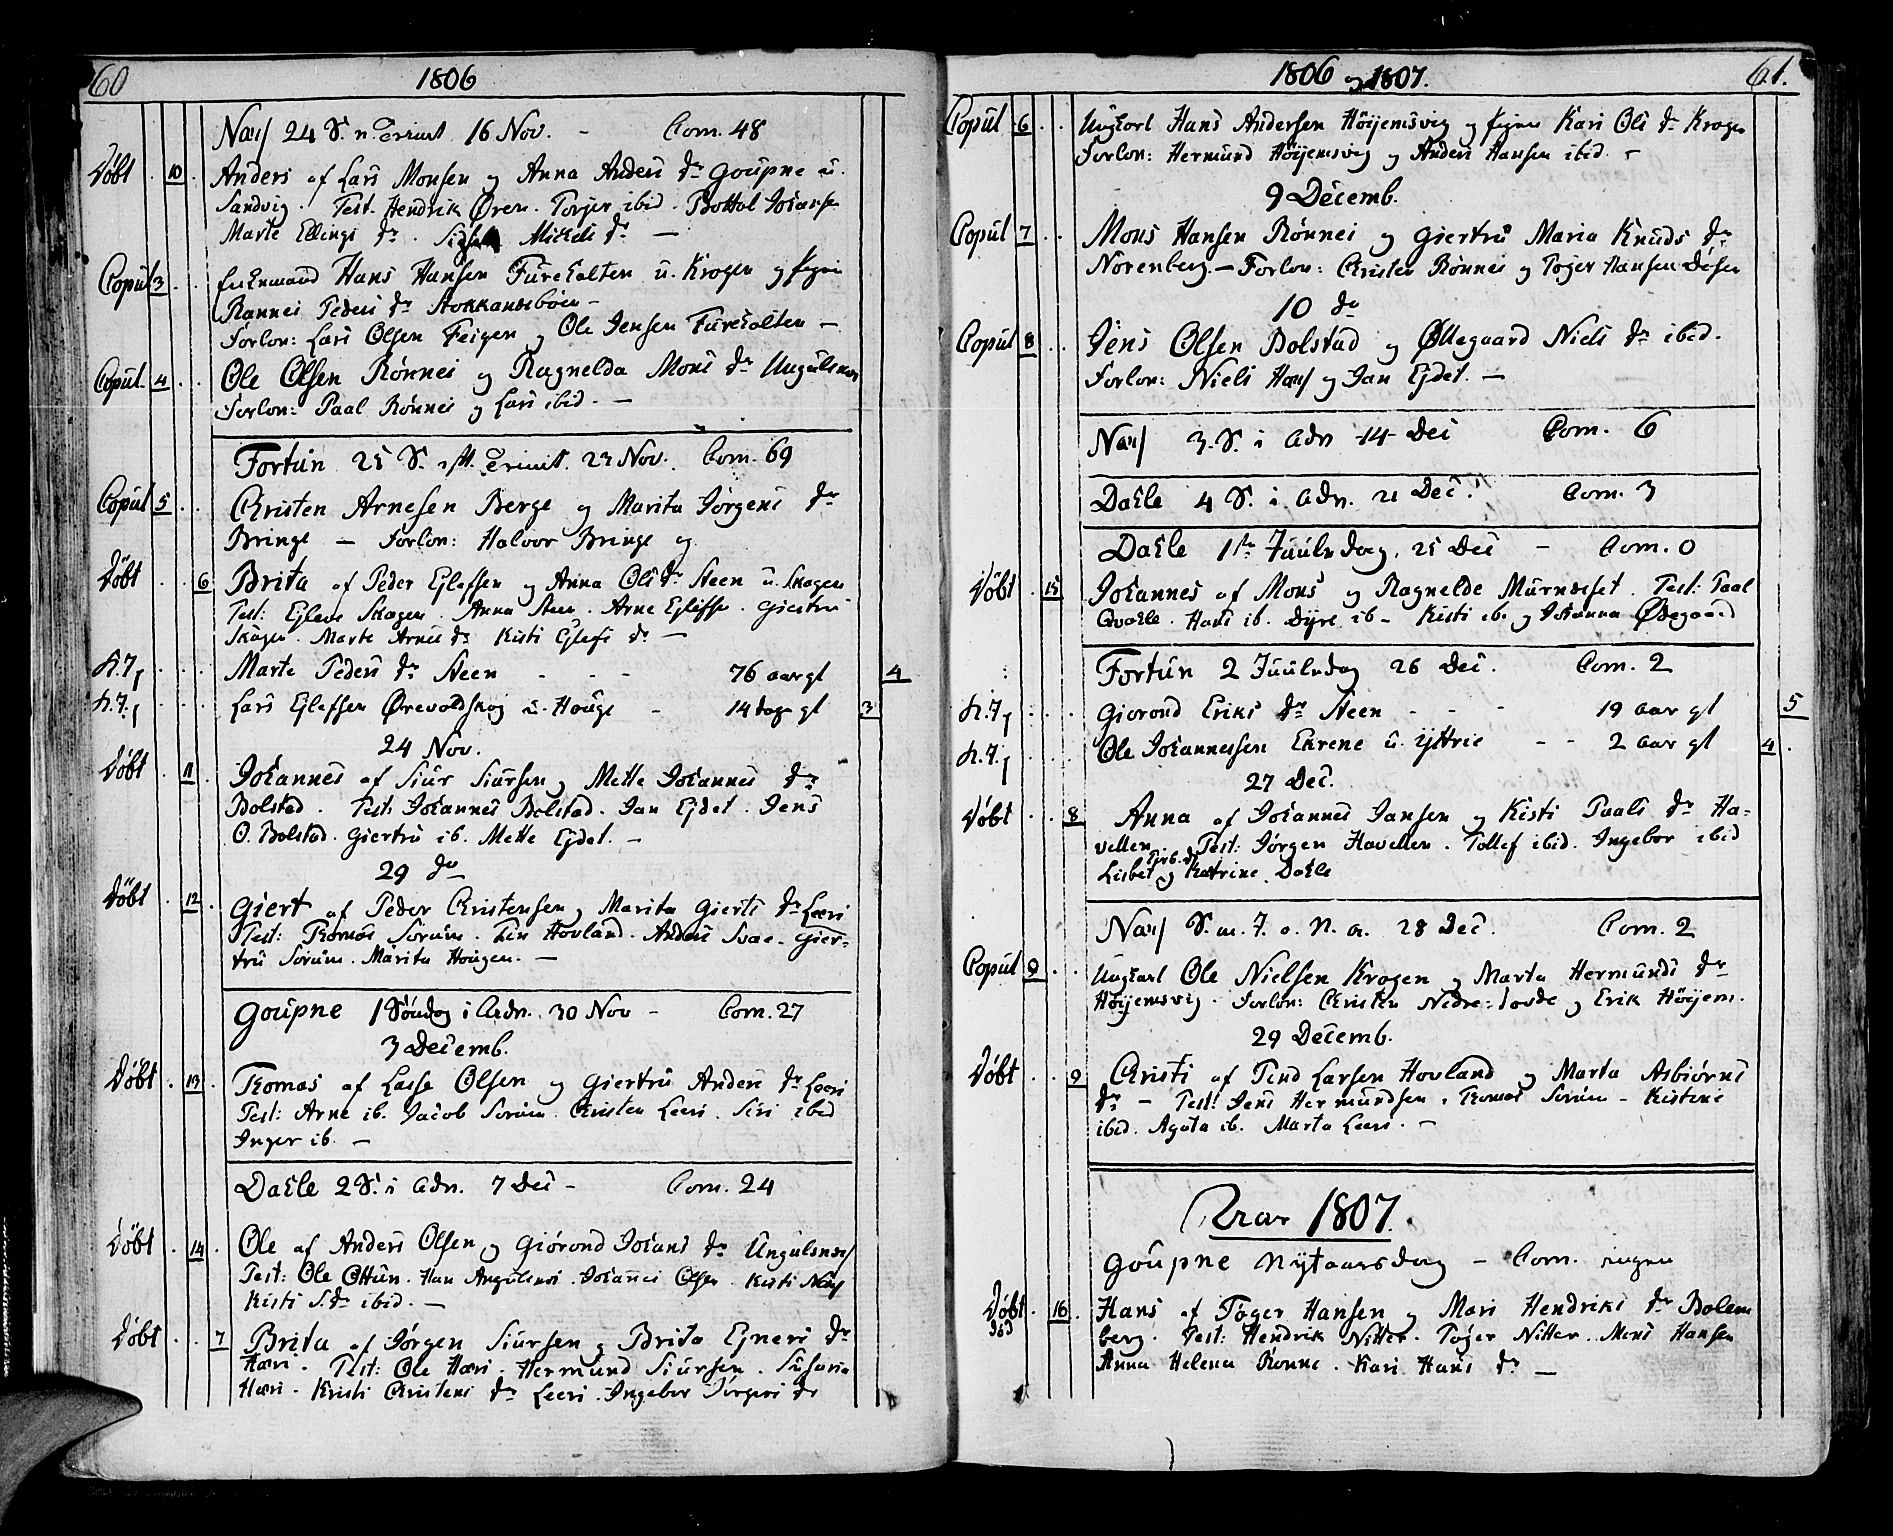 60 1806
Næss 24 S. n. Trinit. 16 Nov. - Com. 48
Döbt 10 Anders af Lars Monsen og Anna Anders dr Goupne u.
Sandvig. Test. Hendrik Øren. Torjer ibid. Bottol Johans
Marte Ellings dr. Michels dr —
Copul 3 Enkemand Hans Hansen Furehalten u. Krogen og pigen
Rannei Peders dr Stokkandsböen -
Forlov: Lars Olsen Feigen og Ole Jensen Furehalten —
Copul. 4 Ole Olsen Rönnei og Ragnelda Mons dr Ungulsnæs
Forlov: Paal Rönnei og Lars ibid. —
Fortun 25 S. eft. Trinit. 23 Nov. Com. 69
Copul 5 Christen Arnesen Berge og Marita Jörgens dr
Bringe — Forlov: Halvor Bringe og
Döbt 6 Brita af Peder Ejlefsen og Anna Ols dr Steen u. Skagen
Test: Ejlev Skagen. Anna Steen. Arne Ejlefs. Giertru
Skagen. Marte Arnes dr Kisti Ejlefs dr —
Marte Peders dr Steen - - - 76 aar gl 4
Lars Ejlefsen Ørevoldskog u. Houge - 14 dage gl 3
24 Nov.
Döbt 11 Johannes af Siur Siursen og Mette Johannes dr
Bolstad. Test: Johannes Bolstad. Jan Ejdet. Jens
O. Bolstad. Giertru ib. Mette Ejdet. —
29 dr
Döbt 12 Giert af Peder Christensen og Marita Gierts dr Leeri
Test: Thomas Sorum. Hovland. Anders Svae. Gier-
tru Sorum. Marita Hougen. —
Goupne 1 Söndag i Advn. 30 Nov - Com. 27
3 Decemb.
Döbt 13 Thomas af Lasse Olsen og Giertru Anders dr Leeri
Test: Arne ib. Jacob Sorum. Christen Leeri. Siri ibid
Inger ib. —
Dahle 2 S. i Adv. 7 Dec - Com. 24
Döbt 14 Ole af Anders Olsen og Giörond Johans dr Ungulsnæs
Test: Ole Ottun. Johannes Olsen. Kisti Næs
Kisti S. dr ibid. —
Döbt 7 Brita af Jörgen Siursen og Brita Ejners dr
Hæri. Test: Ole Hæri. Hermund Siursen. Susana
Hæri. Kristi Christens dr Leeri. Ingebor Jörgens dr
1806 og 1807. 61.
Copul 6 Ungkarl Hans Andersen Höijemsvig og pigen Kari Ols dr Krogen
Forlov: Hermund Höijemsvig og Anders Hansen ibid. -
9 Decemb.
Copul 7 Mons Hansen Rönnei og Giertru Maria Knuds dr
Norenberg. — Forlov: Christen Rönnei og Töger Hansen Døsen
10 dr
Copul 8 Jens Olsen Bolstad og Øllegaard Niels dr ibid.
Forlov: Niels Hæs og Jan Ejdet. —
Næss 3. S. i Adv 14 Dec Com. 6
Dahle 4 S. i Adv. 21 Dec. Com. 3
Dahle 1ste Juuledag. 25 Dec - Com. 0
Döbt 15 Johannes af Mons og Ragnelde Murnæset. Test: Paal
Qvahle. Hans ib. Dyre ib - Kisti ib. og Johanna Ødegaard
Fortun 2 Juuledag 26 Dec. Com. 2
Giorond Eriks dr Steen - - - 19 aar gl 5
Ole Johannessen Ekrene u. Yttrie - - 2 aar gl 4
27 Dec.
Döbt 8 Anna af Johannes Jansen og Kisti Paals dr Ha-
vellen. Test: Jörgen Havellen. Tollef ibid. Ingebor ibid
Lisbet og Katrine Dahle
Næss S. m. J. o. N. a. 28 Dec. Com. 2
Copul 9 Ungkarl Ole Nielsen Krogen og Marta Hermunds dr
Höijemsvig. Forlov: Christen Nedre-Lode og Erik Höijem.
29 Decemb.
Döbt 9 Christi af Tend Larsen Hovland og Marta Asbiörns
dr - Test: Jens Hermundsen. Thomas Sorum - Kistine
ibid. Agata ib. Marta Leeri. —
Aar 1807.
Goupne Nytaarsdag - Com. ingen
Döbt 16 Hans af Töger Hansen og Mari Hendriks dr Bolam
berg. Test: Hendrik Nitter. Töger Nitter. Mons Hansen
Anna Helena Rönne. Kari Hans dr —